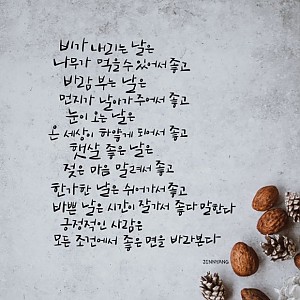 비가 내리는 날은
나무가 먹을수있어서 좋고
바람 부는 날은
먼지가 날아가 주어서 좋고
눈이 오는 날은
온 세상이 하얗게 되어서 좋고
햇살 좋은 날은
젖은 마음 말려서 좋고
한가한 날은 쉬어가서 좋고
바쁜 날은 시간이 잘가서 좋다 말한다
긍정적인 사람은
모든 조건에서 좋은 면을 바라본다
JENNYANG